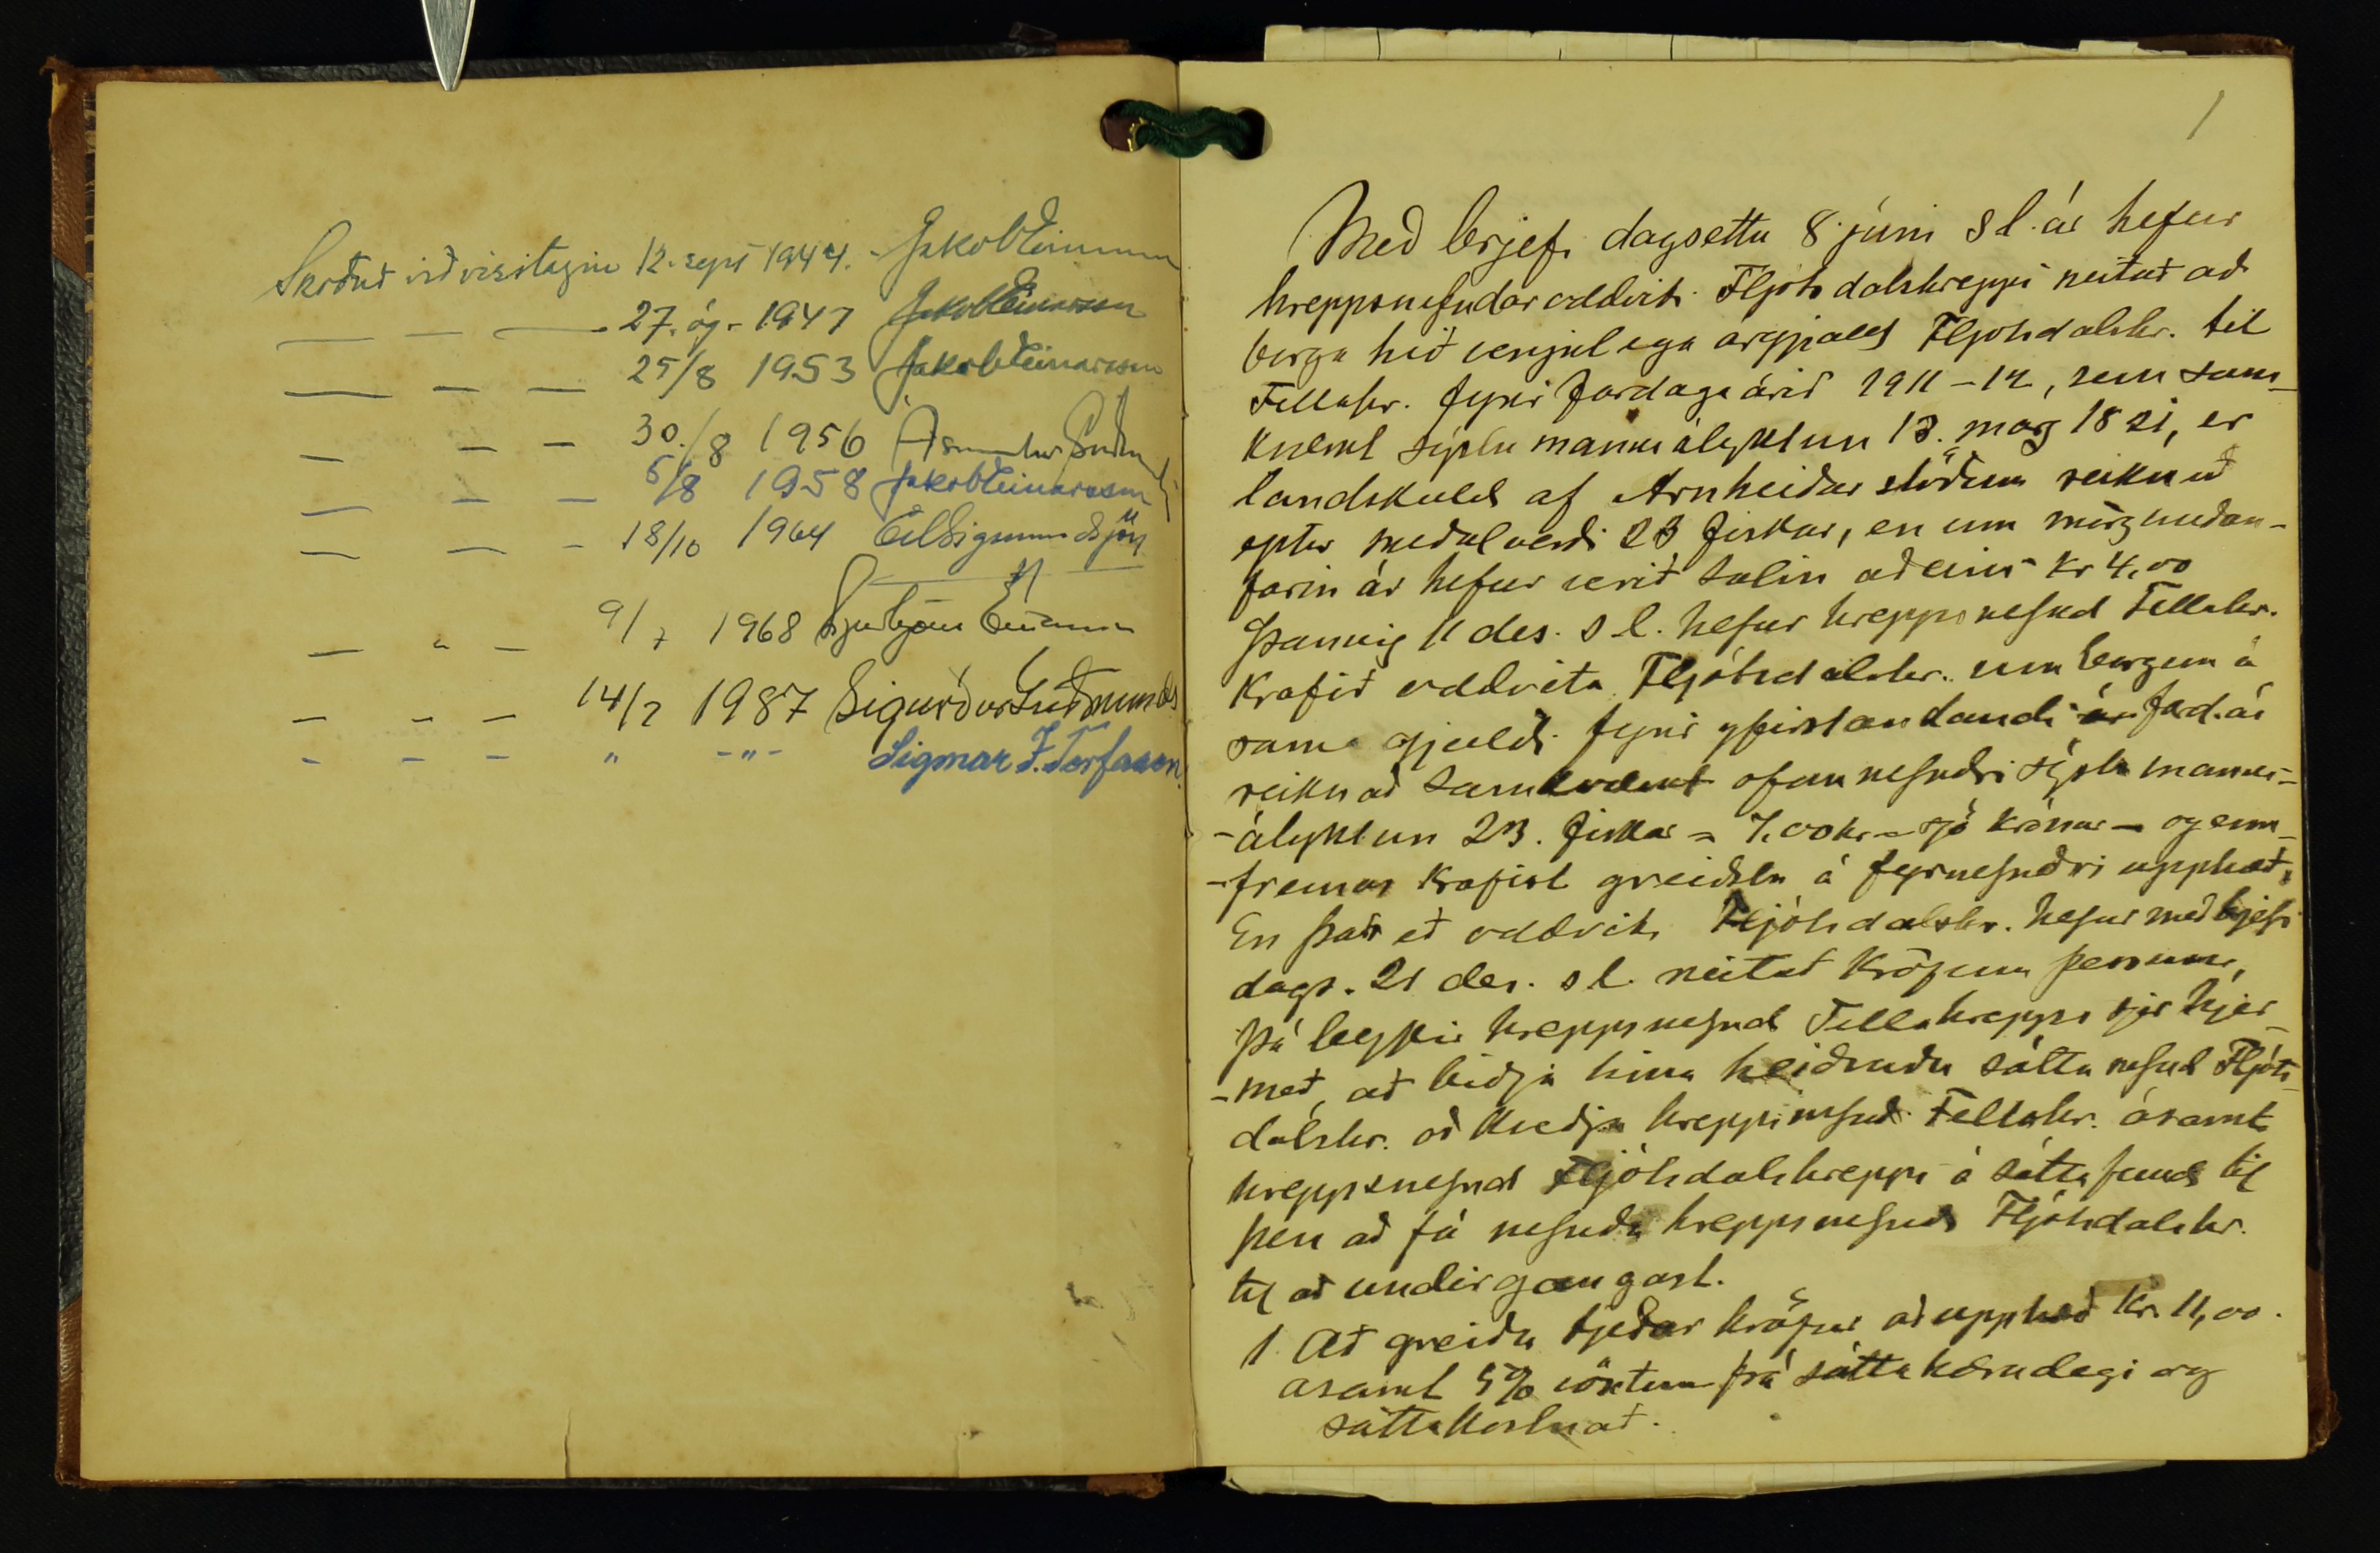 Skoðuð við visitazíu 12. sept 1944. Jakob Einarsson
— — — 27. ág. 1947 Jakob Einarsson
— — — 25/8 1953 Jakob Einarsson
— — — 30./8 1956
— — — 5/8 1958 Jakob Einarsson
— — — 18/10 1964
— „ — 9/7 1968
— - — 14/7 1987 Sigurður Guðmunds
- - - " -"- Sigmar I. Torfason.
1
Með brjefi dagsettu 8. júni s l. ár hefur
hreppsnefndaroddviti Fljótsdalshrepps neitað að
borga hið venjulega árgjald Fljótsdalshr. til
Fellahr. fyrir fardagaárið 1911-12, sem sam-
kvæmt sýslumannsályktun 13. maz 1821, er
landskuld af Arnheiðarstöðum reiknuð
eptir meðalverði 23 fiskar, en um mörg undan-
farin ár hefur verið talin aðeins kr 4,00
Þannig 11 des. s l. hefur hreppsnefnd Fellahr.
krafið oddvita Fljótsdalshr. um borgun á
sama gjaldi fyrir yfirstandandi fard. ár
reiknað samkvæmt ofannefndri sýslumanns-
-ályktun 23. fiskar = 7,00 kr = sjö krónur — og enn-
-fremur krafist greiðslu á fyrnefndri upphæð.
En þar eð oddviti Fljótsdalshr. hefur með brjefi
dags. 21 des. s l. neitað kröfum þessum,
þá leyfir hreppsnefnd Fellahrepps sjer hjer-
-með, að biðja hina heiðruðu sáttanefnd Fljóts-
dalshr. að kveðja hreppsnefnd Fellahr. ásamt
hreppsnefnd Fljótsdalshrepps á sáttafund til
þess að fá nefnda hreppsnefnd Fljótsdalshr.
til að undirgangast.
1. Að greiða tjeðar kröfur að upphæð kr. 11,00.
ásamt 5% vöxtum frá sáttakærudegi og
sáttakostnað.